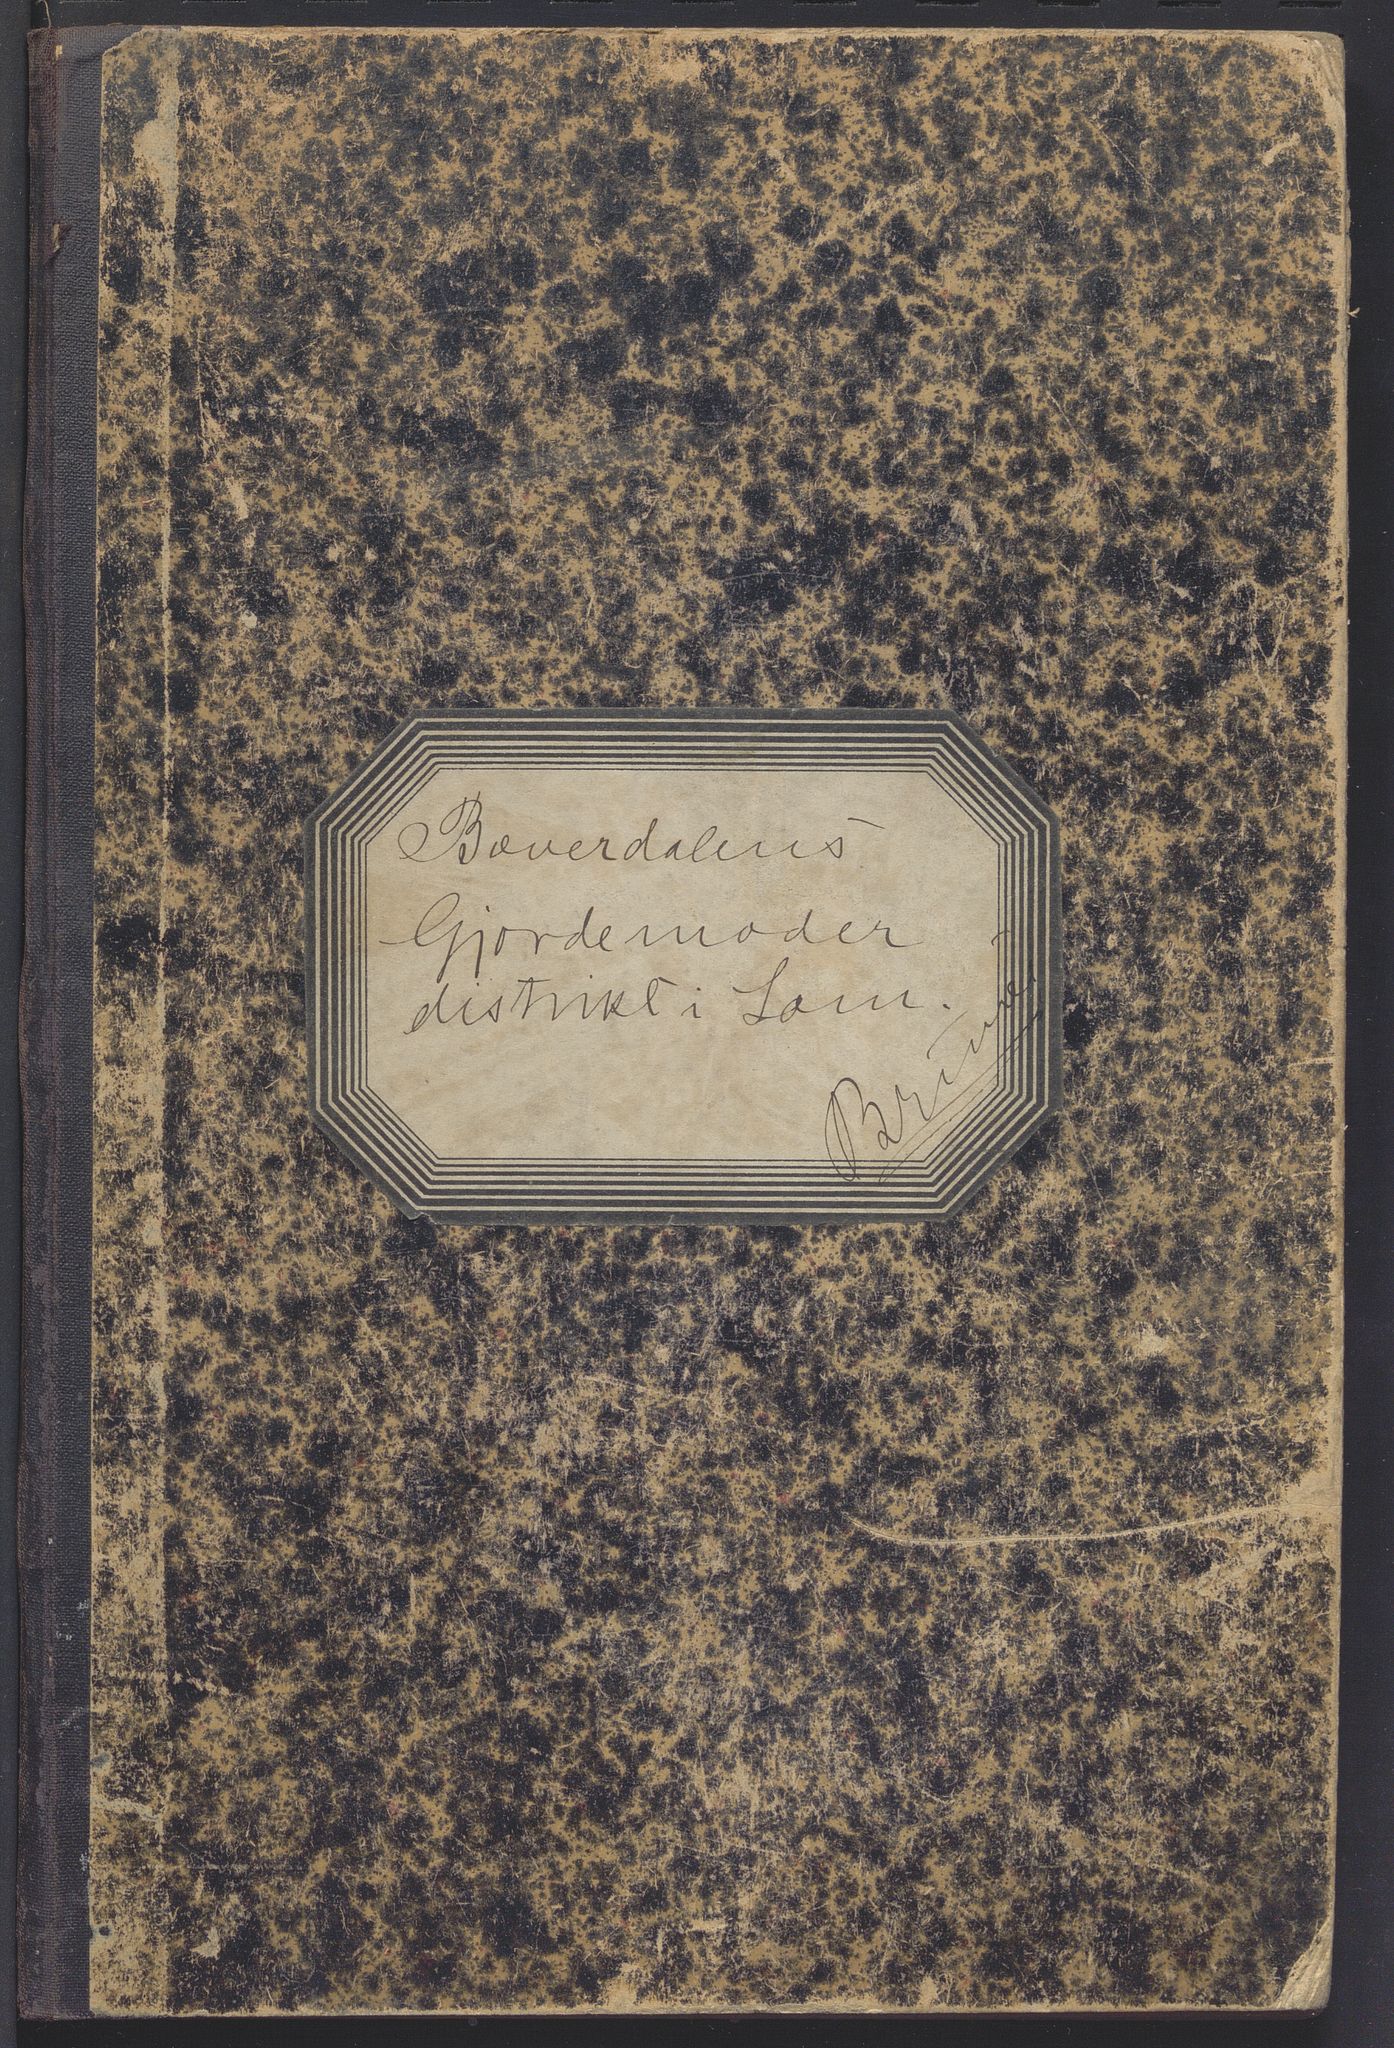 Bæverdalens
Gjordemoder
distrikt i Lom.